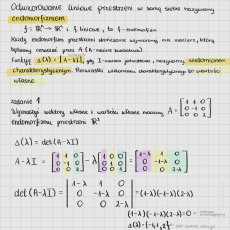 Odwzorowanie liniowe przestrzeni w samą siebie nazywamy
endomorfizmem
f: ℝⁿ → ℝⁿ i f liniowe, to f - endomorfizm
Każdy endomorfizm przestrzeni skończenie wymiarowej ma macierz, którą
będziemy oznaczać przez A (A - macierz kwadratowa).
Funkcję Δ(λ) = |A-λI|, gdy I - macierz jednostkowa, nazywamy wielomianem
charakterystycznym. Pierwiastki wielomianu charakterystycznego to wartości
własne.
zadanie 1
Wyznaczyć wektory własne i wartości własne macierzy A = [1 1 0
0 -1 0
0 0 2]
endomorfizmu przestrzeni ℝ³
Δ(λ) = det(A-λI)
A-λI = [1 1 0
0 -1 0
0 0 2] - λ [1 0 0
0 1 0
0 0 1] = [1-λ 1 0
0 -1-λ 0
0 0 2-λ]
det(A-λI) = |1-λ 1 0
0 -1-λ 0
0 0 2-λ| = (1-λ)(-1-λ)(2-λ)
(1-λ)(-1-λ)(2-λ) = 0